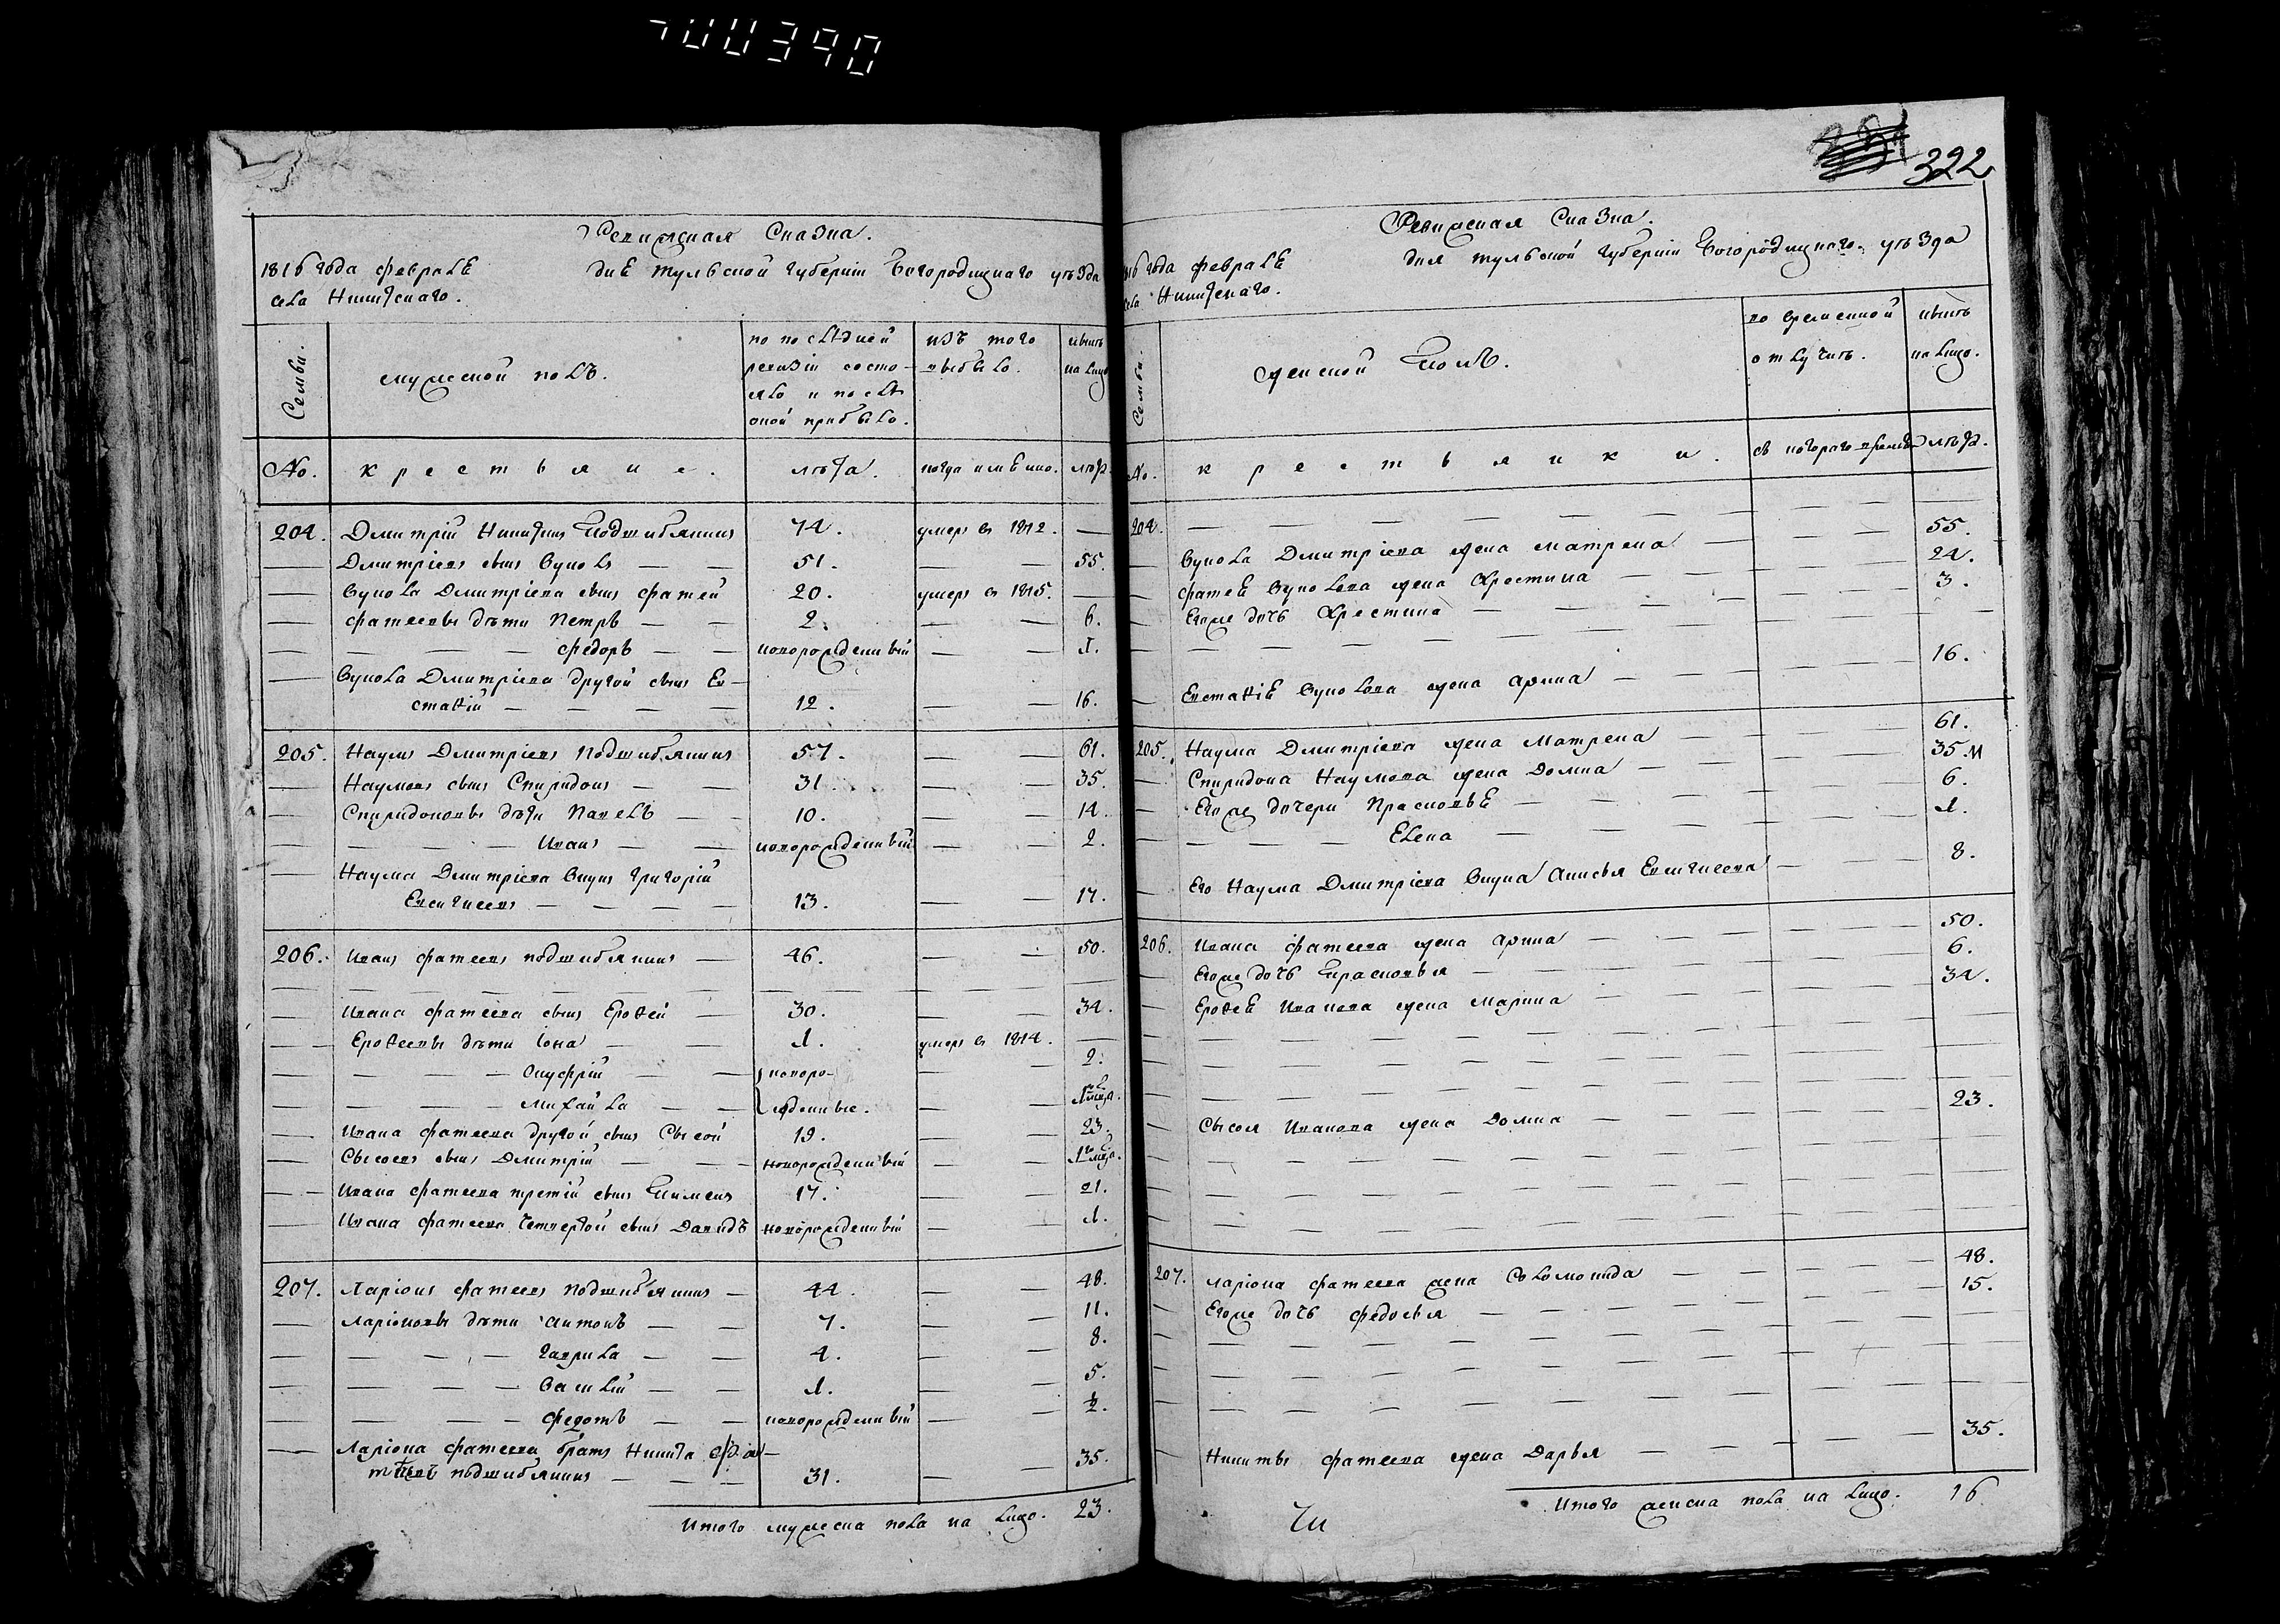 700390
322
Ревижская Сказка.
1816 года февраля дня Тульской Губерніи Богородицкаго уѣзда
села Никитскаго.
Семьи. мужеской полъ. по последней ревизіи состояло и после оной прибыло. изъ того выбыло. нынѣ на лицо
No. крестьяне. лѣта. когда имянно. лѣта
204. Дмитрій Никитинъ Подшибякинъ 74. умеръ в 1812. —
Дмитріевъ сынъ Вуколъ 51. 55.
Вукола Дмитріева сынъ Фатей 20. умеръ в 1815. —
Фатеевы дѣти Петръ 2. 6.
Федоръ новорожденный 1.
Вукола Дмитріева другой сынъ Ев-
стафій 12. 16.
205. Наумъ Дмитріевъ Подшибякинъ 57. 61.
Наумовъ сынъ Спиридонъ 31. 35.
Спиридоновы дѣти Павелъ 10. 14.
Иванъ новорожденный 2.
Наума Дмитріева внукъ Григорій
Евсигнеевъ 13. 17.
206. Иванъ Фатеевъ подшибякинъ 46. 50.
Ивана Фатеева сынъ Ерофей 30. 34.
Ерофеевы дѣти Іона 1. умеръ в 1814. —
Онуфрій новоро- 2.
Михайла жденные.
Ивана Фатеева другой сынъ Сысой 19. 23.
Сысоевъ сынъ Дмитрій новорожденный
Ивана Фатеева третій сынъ Пименъ 17. 21.
Ивана Фатеева четвертой сынъ Давидъ новорожденный 1.
207. Ларіонъ Фатеевъ Подшибякинъ 44. 48.
Ларіоновы дѣти Антонъ 7. 11.
Гаврила 4. 8.
Василій 1. 5.
Федотъ новорожденный 2.
Ларіона Фатеева братъ Никита Фа-
теевъ подшибякинъ 31. 35.
Итого мужеска пола на лицо. 23.
Ревижская Сказка.
1816 года февраля дня Тульской Губерніи Богородицкаго уѣзда
села Никитскаго.
Семьи. женской полъ. во временной отлучкѣ. нынѣ на лицо.
No. крестьянки. съ котораго времени лѣта.
204. —
Вукола Дмитріева жена Матрена 55.
Фатея Вуколова жена Христина 24.
Егоже дочь Христина 3.
Евстафія Вуколова жена Арина 16.
205. Наума Дмитріева жена Матрена 61.
Спиридона Наумова жена Домна 35.
Егоже дочери Прасковья 6.
Елена 1.
Его Наума Дмитріева внука Анисья Евсигнеева 8.
206. Ивана Фатеева жена Арина 50.
Егоже дочь Прасковья 6.
Ерофея Иванова жена Марина 34.
Сысоя Иванова жена Домна 23.
207. Ларіона Фатеева жена Соломонида 48.
Егоже дочь Федосья 15.
Никиты Фатеева жена Дарья 35.
Итого женска пола на лицо. 16